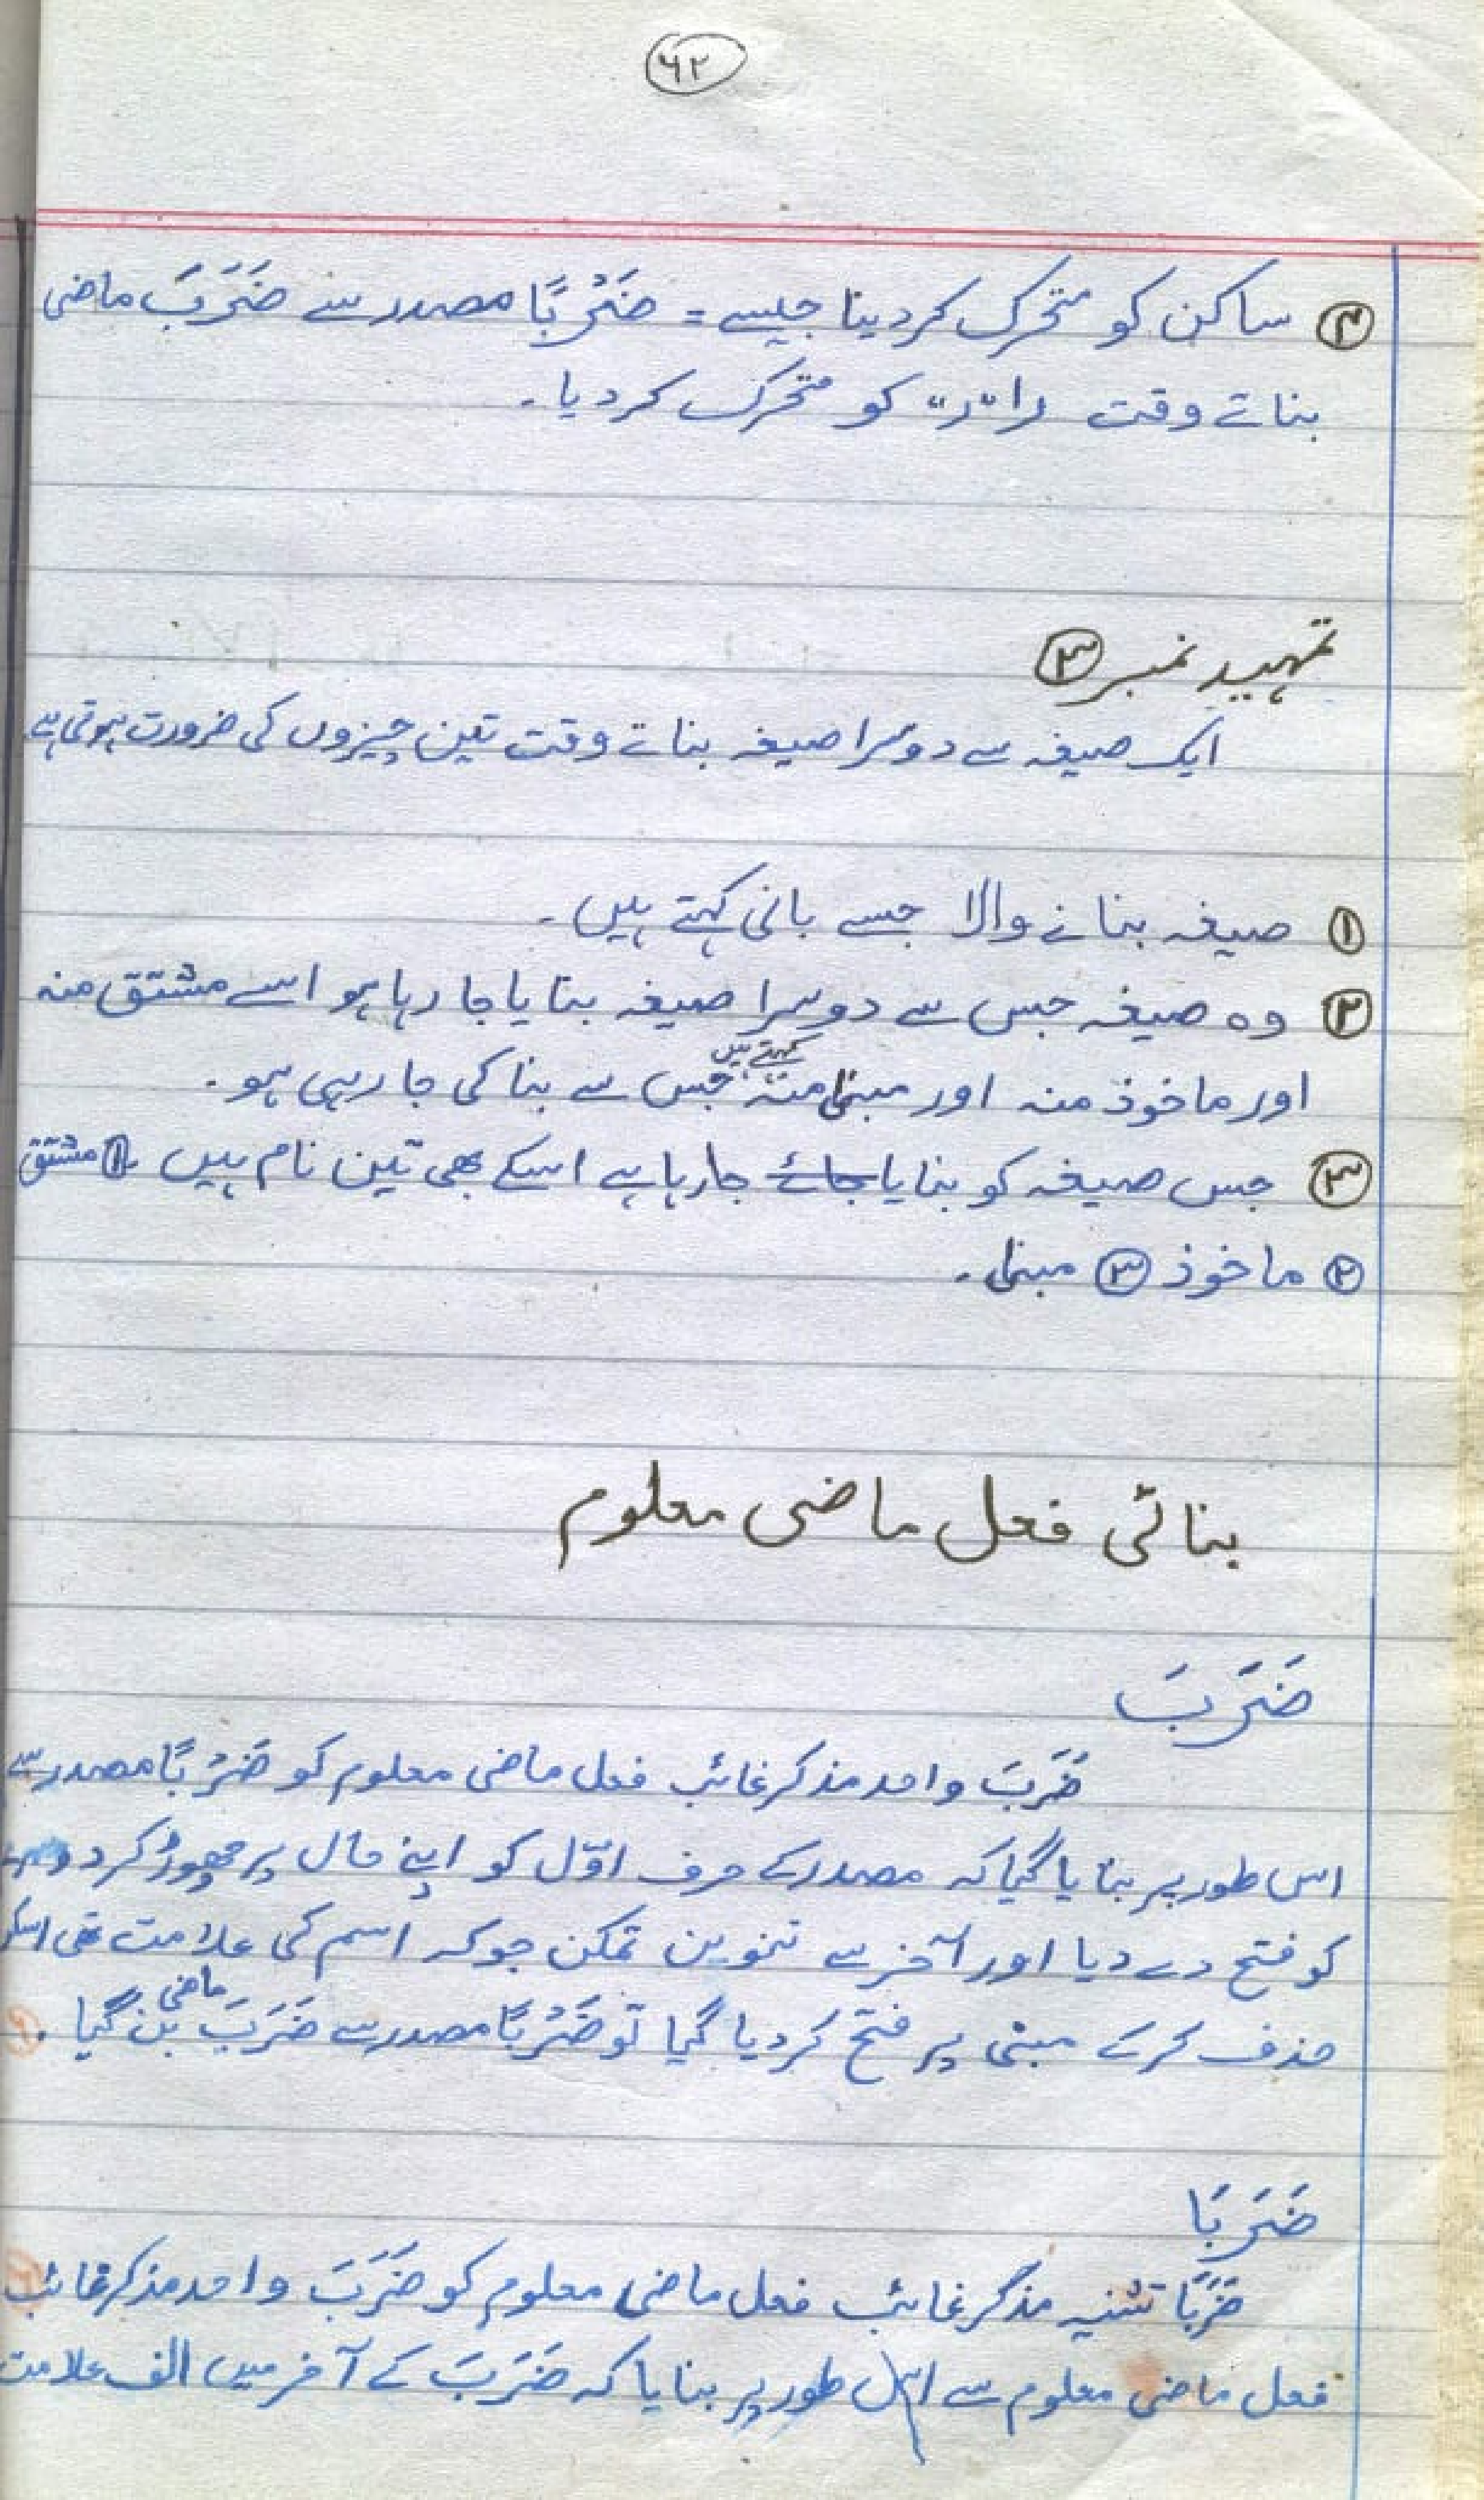 ۶۲
④ ساکن کو متحرک کر دینا جیسے = ضَرْبًا مصدر سے ضَرَبَ ماضی
بناتے وقت را "ر" کو متحرک کر دیا۔
تمہید نمبر ③
ایک صیغہ سے دوسرا صیغہ بناتے وقت تین چیزوں کی ضرورت ہوتی ہے
① صیغہ بنانے والا جسے بانی کہتے ہیں۔
② وہ صیغہ جس سے دوسرا صیغہ بنایا جا رہا ہو اسے مشتق منہ
اور ماخوذ منہ اور مبنیٰ منہ کہتے ہیں جس سے بنا کی جا رہی ہو۔
③ جس صیغہ کو بنایا جائے جا رہا ہے اسکے بھی تین نام ہیں ① مشتق
② ماخوذ ③ مبنیٰ۔
بنائی فعل ماضی معلوم
ضَرَبَ
ضَرَبَ واحد مذکر غائب فعل ماضی معلوم کو ضَرْبًا مصدر سے
اس طور پر بنایا گیا کہ مصدر کے حرف اوّل کو اپنے حال پر چھوڑ کر دوسرے
کو فتح دے دیا اور آخر سے تنوین تمکن جو کہ اسم کی علامت تھی اسکو
حذف کر کے مبنی پر فتح کر دیا گیا تو ضَرْبًا مصدر سے ضَرَبَ ماضی بن گیا۔
ضَرَبَا
ضَرَبَا تثنیہ مذکر غائب فعل ماضی معلوم کو ضَرَبَ واحد مذکر غائب
فعل ماضی معلوم سے اس طور پر بنایا کہ ضَرَبَ کے آخر میں الف علامت